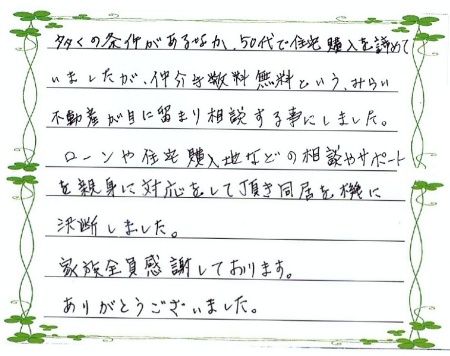 多くの条件があるなか、50代で住宅購入を諦めて
いましたが、仲介手数料無料という、みらい
不動産が目に留まり相談する事にしました。
ローンや住宅購入地などの相談やサポート
を親身に対応をして頂き同居を機に
決断しました。
家族全員感謝しております。
ありがとうございました。